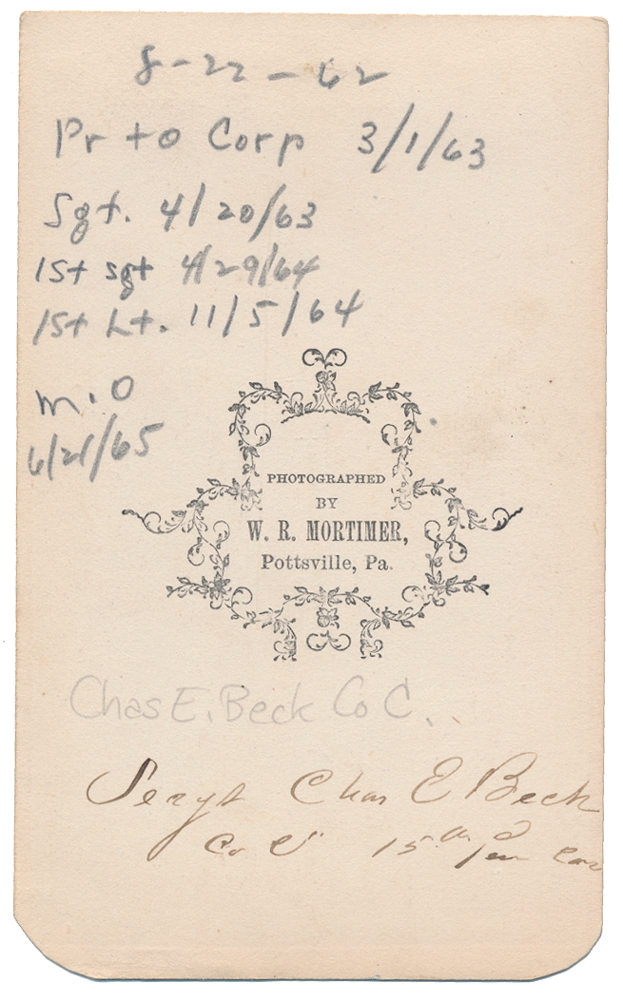 8-22-62
Pr to Corp 3/1/63
Sgt. 4/20/63
1st sgt 4/29/64
1st Lt. 11/5/64
M.O
6/21/65
PHOTOGRAPHED
BY
W. R. MORTIMER,
Pottsville, Pa.
Chas E. Beck Co C.
Sergt Chas E Beck
Co C 15th Pen Cav